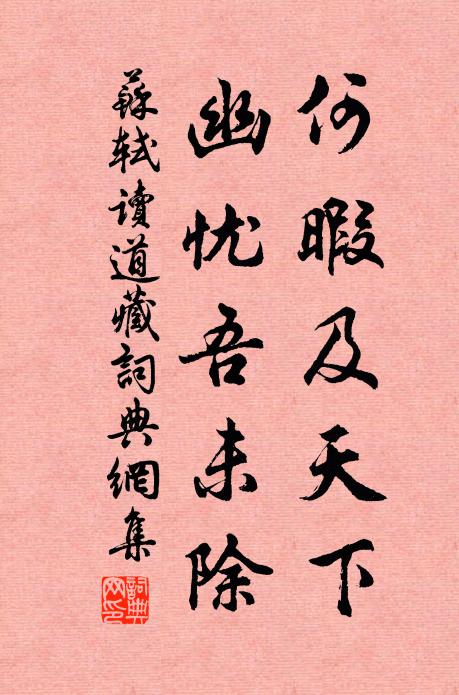 何暇及天下
幽忧吾未除
蘇軾讀道藏詞典網集
詞典网印